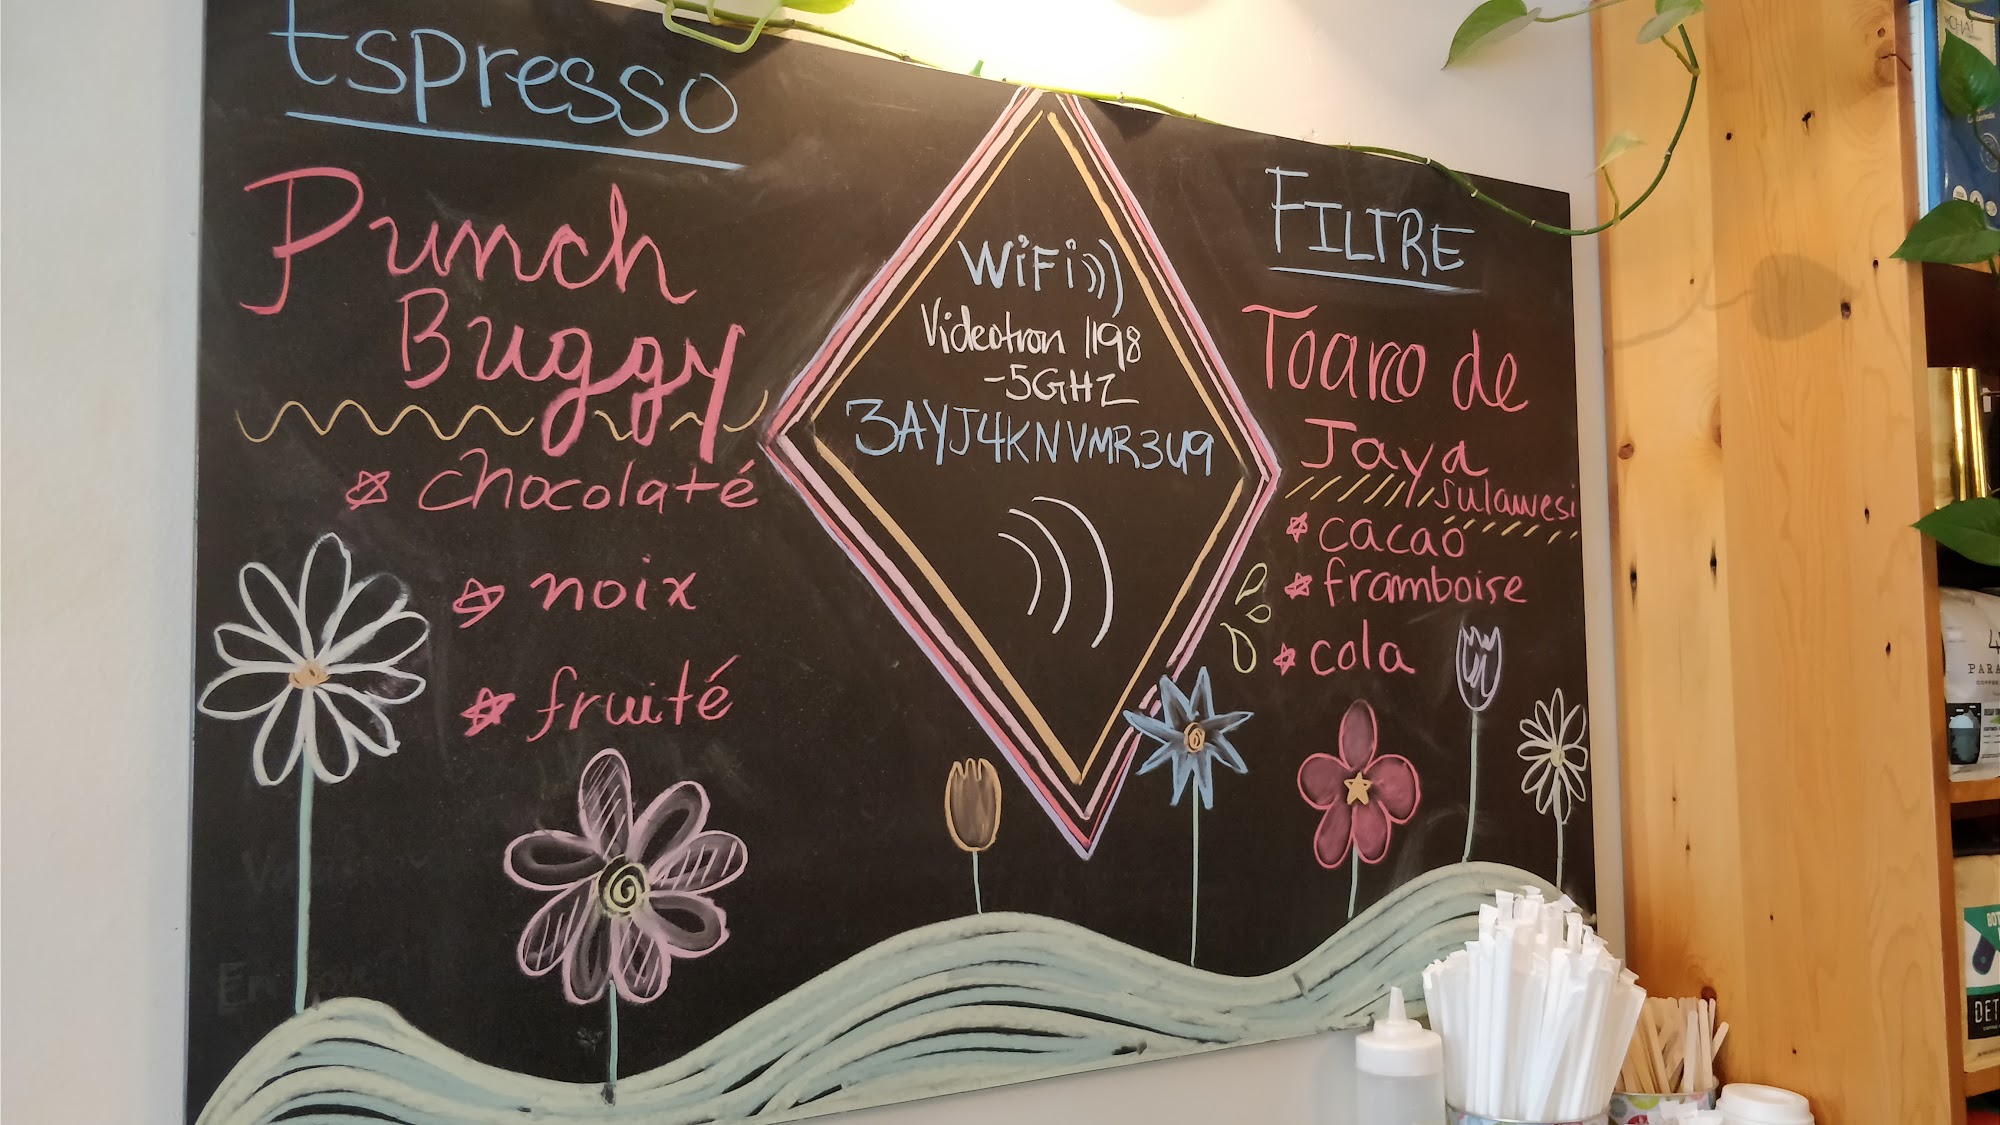 Espresso
Punch
Buggy
chocolaté
noix
fruité
WiFi
Videotron 1198
-5GHZ
3AYJ4KNVMR3U9
FILTRE
Toarco de
Jaya
Sulawesi
cacao
framboise
cola
CHAI
PARA
DET